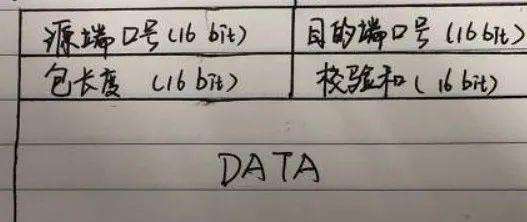 源端口号(16 bit) 目的端口号(16 bit)
包长度 (16 bit) 校验和( 16 bit)
DATA